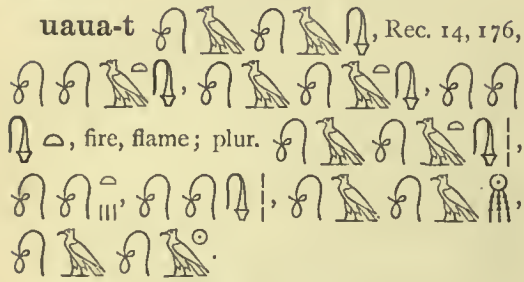 uaua-t 𓍯𓄿𓍯𓄿𓊮, Rec. 14, 176,
𓍯𓍯𓄿𓏏𓊮, 𓍯𓄿𓍯𓄿𓏏𓊮, 𓍯𓍯
𓊮𓏏, fire, flame; plur. 𓍯𓄿𓍯𓄿𓏏𓊮𓏪,
𓍯𓍯𓏏𓏥, 𓍯𓍯𓊮𓏪, 𓍯𓄿𓍯𓄿𓇶,
𓍯𓄿𓍯𓄿𓇳.